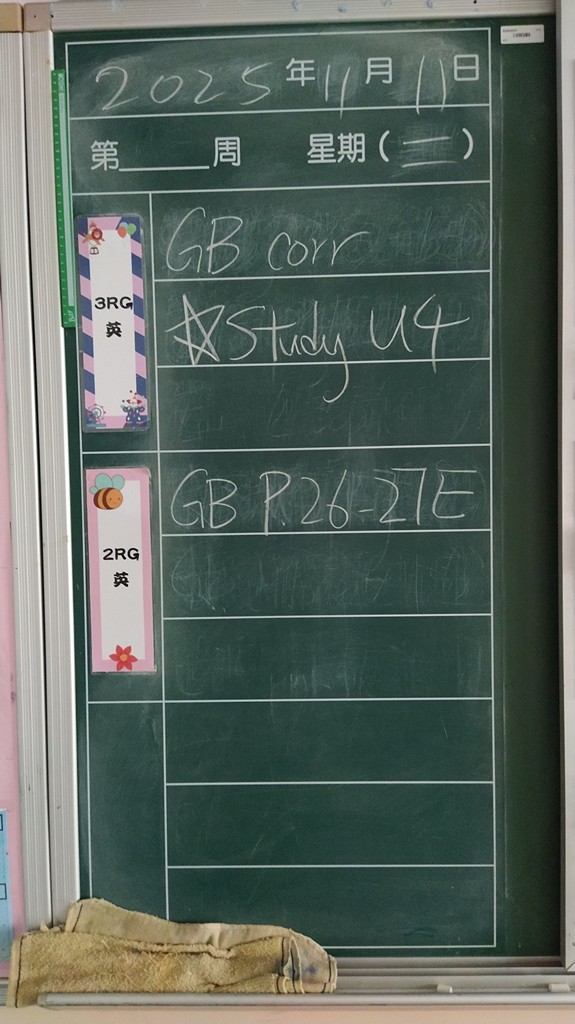 2025年11月11日
第____周 星期(二)
3RG
英
GB corr
☆Study U4
2RG
英
GB P.26-27E